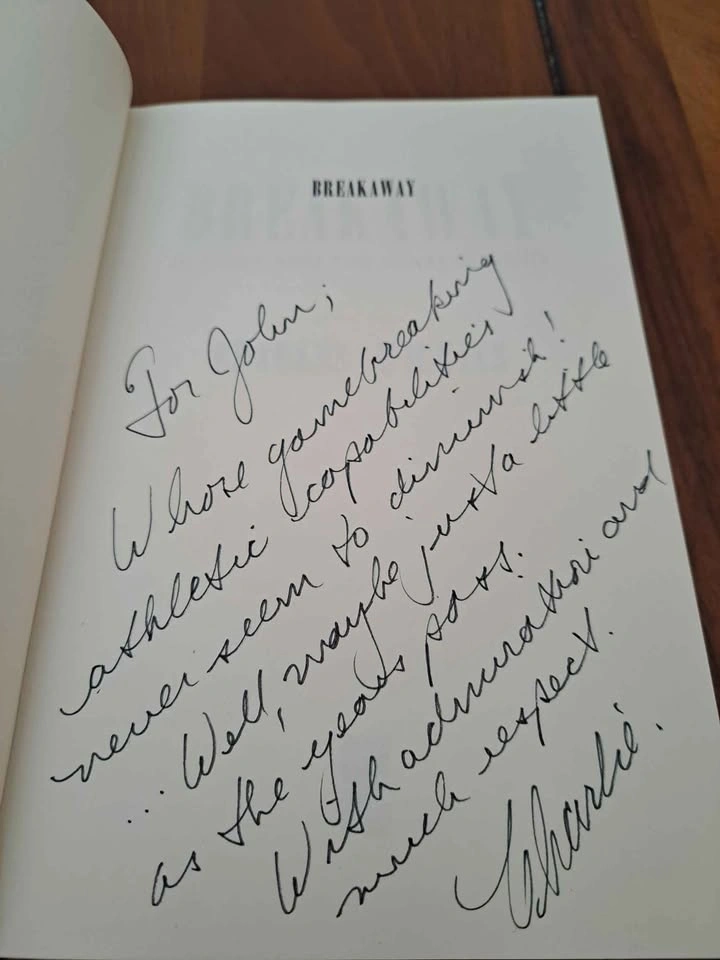 BREAKAWAY
For John;
Whose gamebreaking
athletic capabilities
never seem to diminish!
... Well, maybe just a little
as the years pass.
With admiration and
much respect.
Charlie.